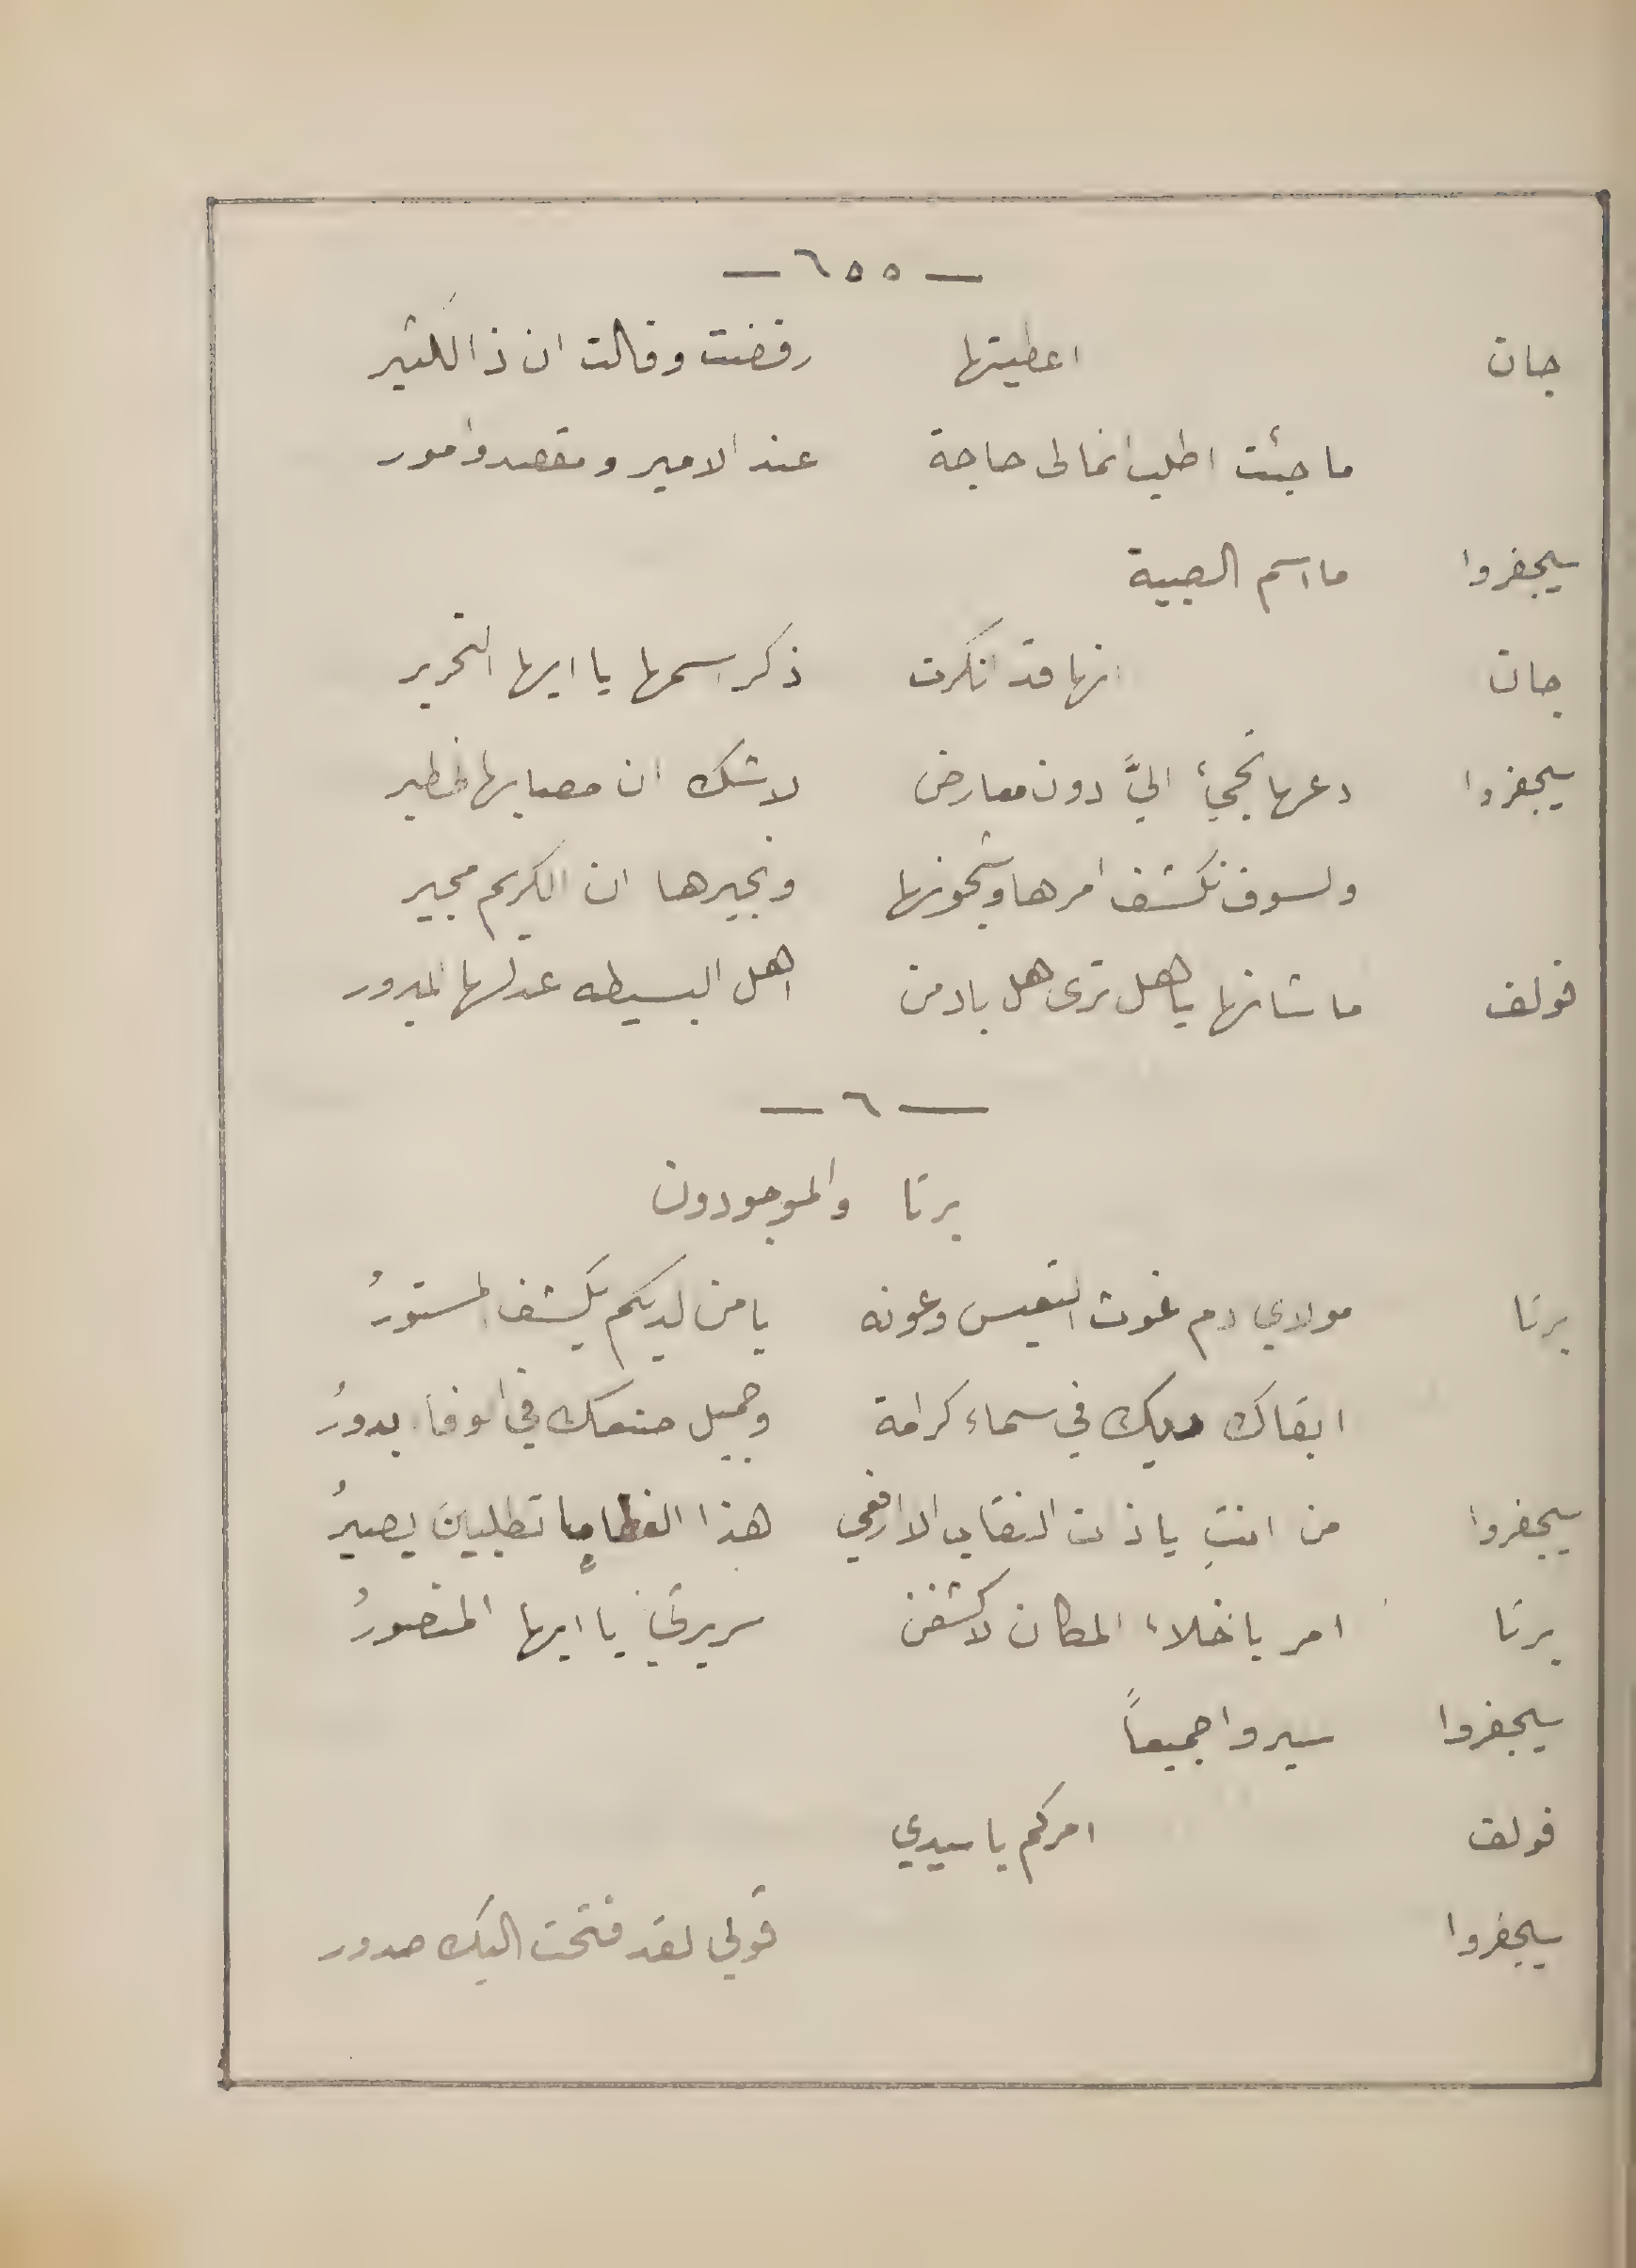 — ٦٥٥ —
جان اعطيتها رفضت وقالت ان ذا لكثير
ما جئت اطلب انما لى حاجة عند الامير ومقصد وامور
سيجفروا ما اسم الصبية
جان انها قد انكرت ذكر اسمها يا ايها النحرير
سيجفروا دعها تجيئ اليَّ دون معارض لا شك ان مصابها لخطير
ولسوف نكشف امرها وشجونها ونجيرها ان الكريم مجير
فولف ما شانها يا هل ترى هل باد من اهل البسيطه عدلها المبرور
— ٦ —
برتا والموجودون
برتا مولاي دم غوث التعيس وعونه يا من لديكم يكشف المستورُ
ابقاك ربك في سماء كرامة وجميل صنعك في الوفاء بدورُ
سيجفروا من انتِ يا ذات النقاب الا ارفعي هذا الغطا ما تطلبينَ يصيرُ
برتا امر باخلاء المكان لاكشفن سريرتي يا ايها المنصورُ
سيجفروا سيروا جميعاً
فولف امركم يا سيدي
سيجفروا قولي لقد فتحت اليك صدور